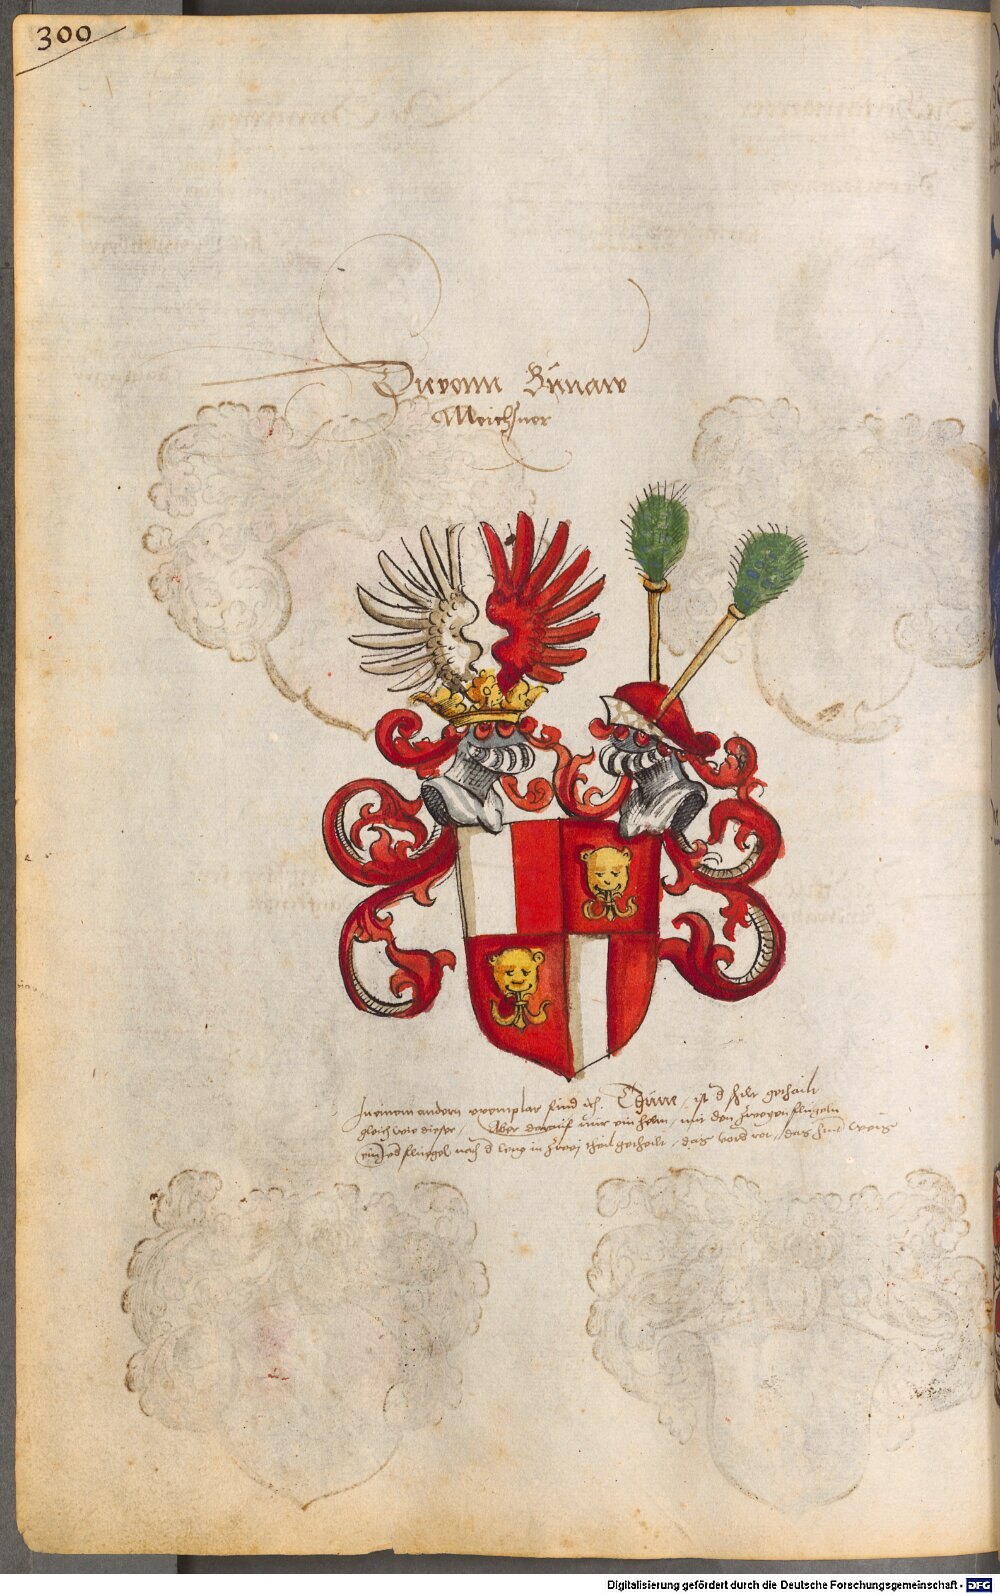 300
Die vonn Bünaw
Meichsner
In einem andern exemplar find ich. Thüne, ist d schilt getheilt
gleich wie dieser, Aber darauf nur ein helm, mit den zweyen flügeln
ein ied flüegel nach d leng in zwei theil getheilt, das vord rot, das hind weis
Digitalisierung gefördert durch die Deutsche Forschungsgemeinschaft - DFG